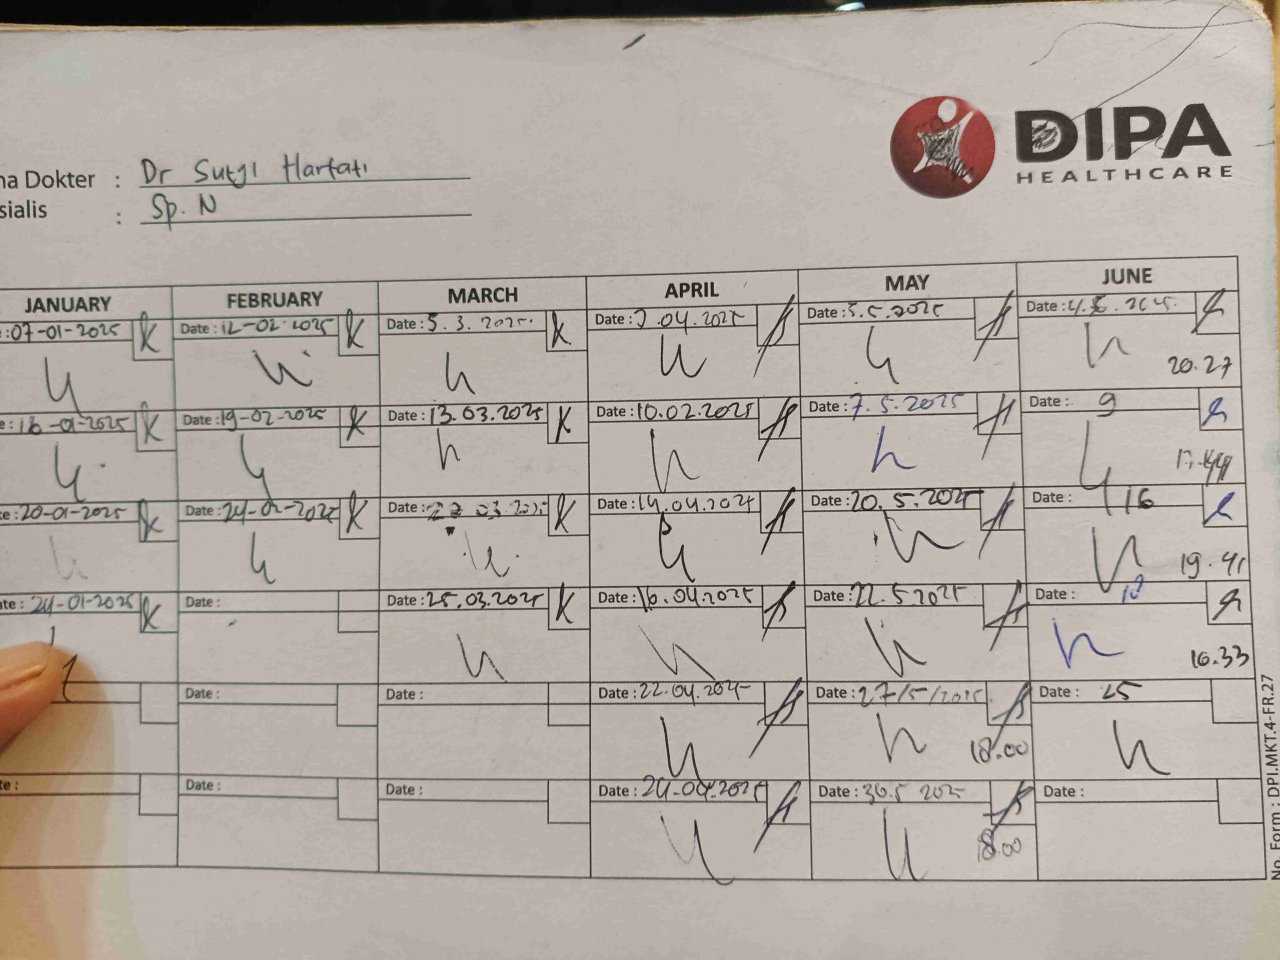 DIPA
HEALTHCARE
na Dokter : Dr Sugi Hartati
sialis : Sp. N
JANUARY FEBRUARY MARCH APRIL MAY JUNE
e : 07-01-2025 K Date : 12-02-2025 K Date : 5. 3. 2025. K Date : 2.04.2025 Date : 5.5.2025 Date : 4.6. 2025.
20.27
e : 16-01-2025 K Date : 19-02-2025 K Date : 13.03.2025 K Date : 10.02.2025 Date : 7.5.2025 Date : 9
17.44
te : 20-01-2025 K Date : 24-02-2025 K Date : 03.2025 K Date : 14.04.2025 Date : 20.5.2025 Date : 16
19.41
ate : 24-01-2025 K Date : Date : 25.03.2025 K Date : 16.04.2025 Date : 22.5.2025 Date : 18
16.33
Date : Date : Date : 22.04.2025 Date : 27/5/2025 Date : 25
18.00
te : Date : Date : Date : 24.04.2025 Date : 30.5 2025 Date :
18.00
No. Form : DPI.MKT.4-FR.27